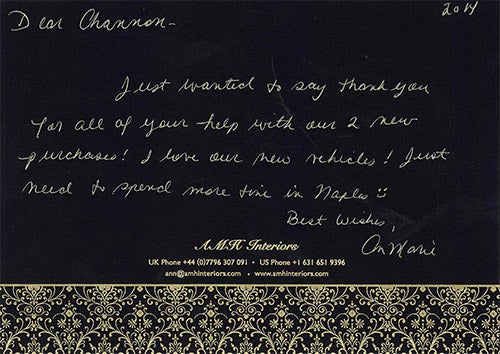 2014
Dear Channon-
Just wanted to say thank you
for all of your help with our 2 new
purchases! I love our new vehicles! Just
need to spend more time in Naples
Best Wishes,
AnMarie
A.M.H Interiors
UK Phone +44 (0)7796 307 091 • US Phone +1 631 651 9396
ann@amhinteriors.com • www.amhinteriors.com